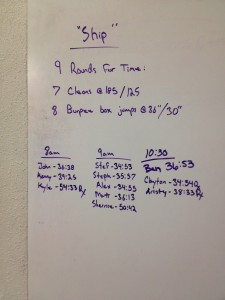 "Ship"
9 Rounds For Time:
7 Cleans @ 185/125
8 Burpee box jumps @ 36"/30"
8am
John - 36:38
- 39:25
Kyle - 54:33 Rx
9am
Stef - 34:53
Steph - 35:37
Alex - 34:55
Matt - 36:13
Shannon - 50:42
10:30
Ben 36:53
Clayton - 34:54 Rx
Aristy - 38:33 Rx